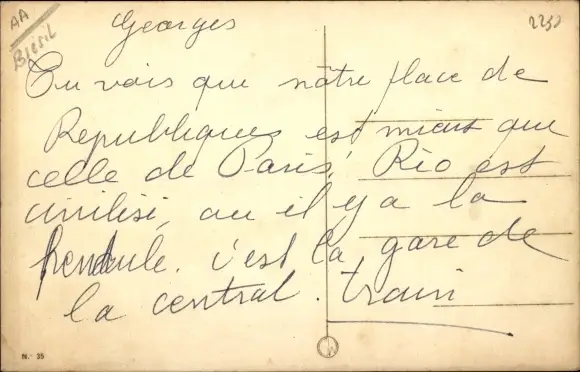 AA
Brésil
2252
Georges
Tu vois que nôtre place de
Republiques est mieux que
celle de Paris! Rio est
civilisé, ou il y a la
pendule. c'est la gare de
la central. train
N.- 35